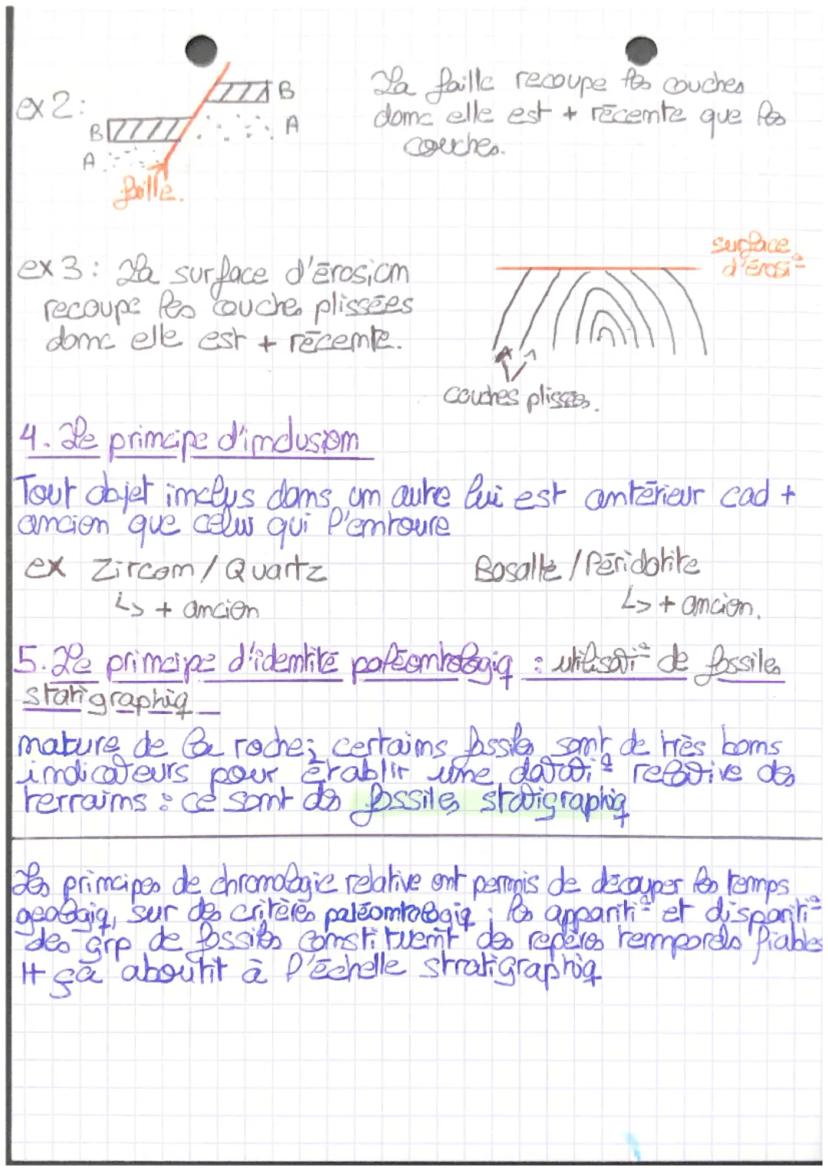 ex 2:
B
A
B
A
faille.
La faille recoupe les couches
donc elle est + récente que les
couches.
ex 3 : La surface d'érosion
recoupe les couches plissées
donc elle est + récente.
surface
d'érosi°
couches plissées.
4. Le principe d'inclusion
Tout objet inclus dans un autre lui est antérieur cad +
ancien que celui qui l'entoure
ex Zircon / Quartz
↳ + ancien
Basalte / Péridotite
↳ + ancien.
5. Le principe d'identité paléontologiq : utilisati° de fossiles
stratigraphiq
nature de la roche ; certains fossiles sont de très bons
indicateurs pour établir une datati° relative des
terrains : ce sont des fossiles stratigraphiq
Les principes de chronologie relative ont permis de découper les temps
géologiq, sur des critères paléontologiq ; les appariti° et dispariti°
des grp de fossiles constituent des repères temporels fiables
ça aboutit à l'échelle stratigraphiq